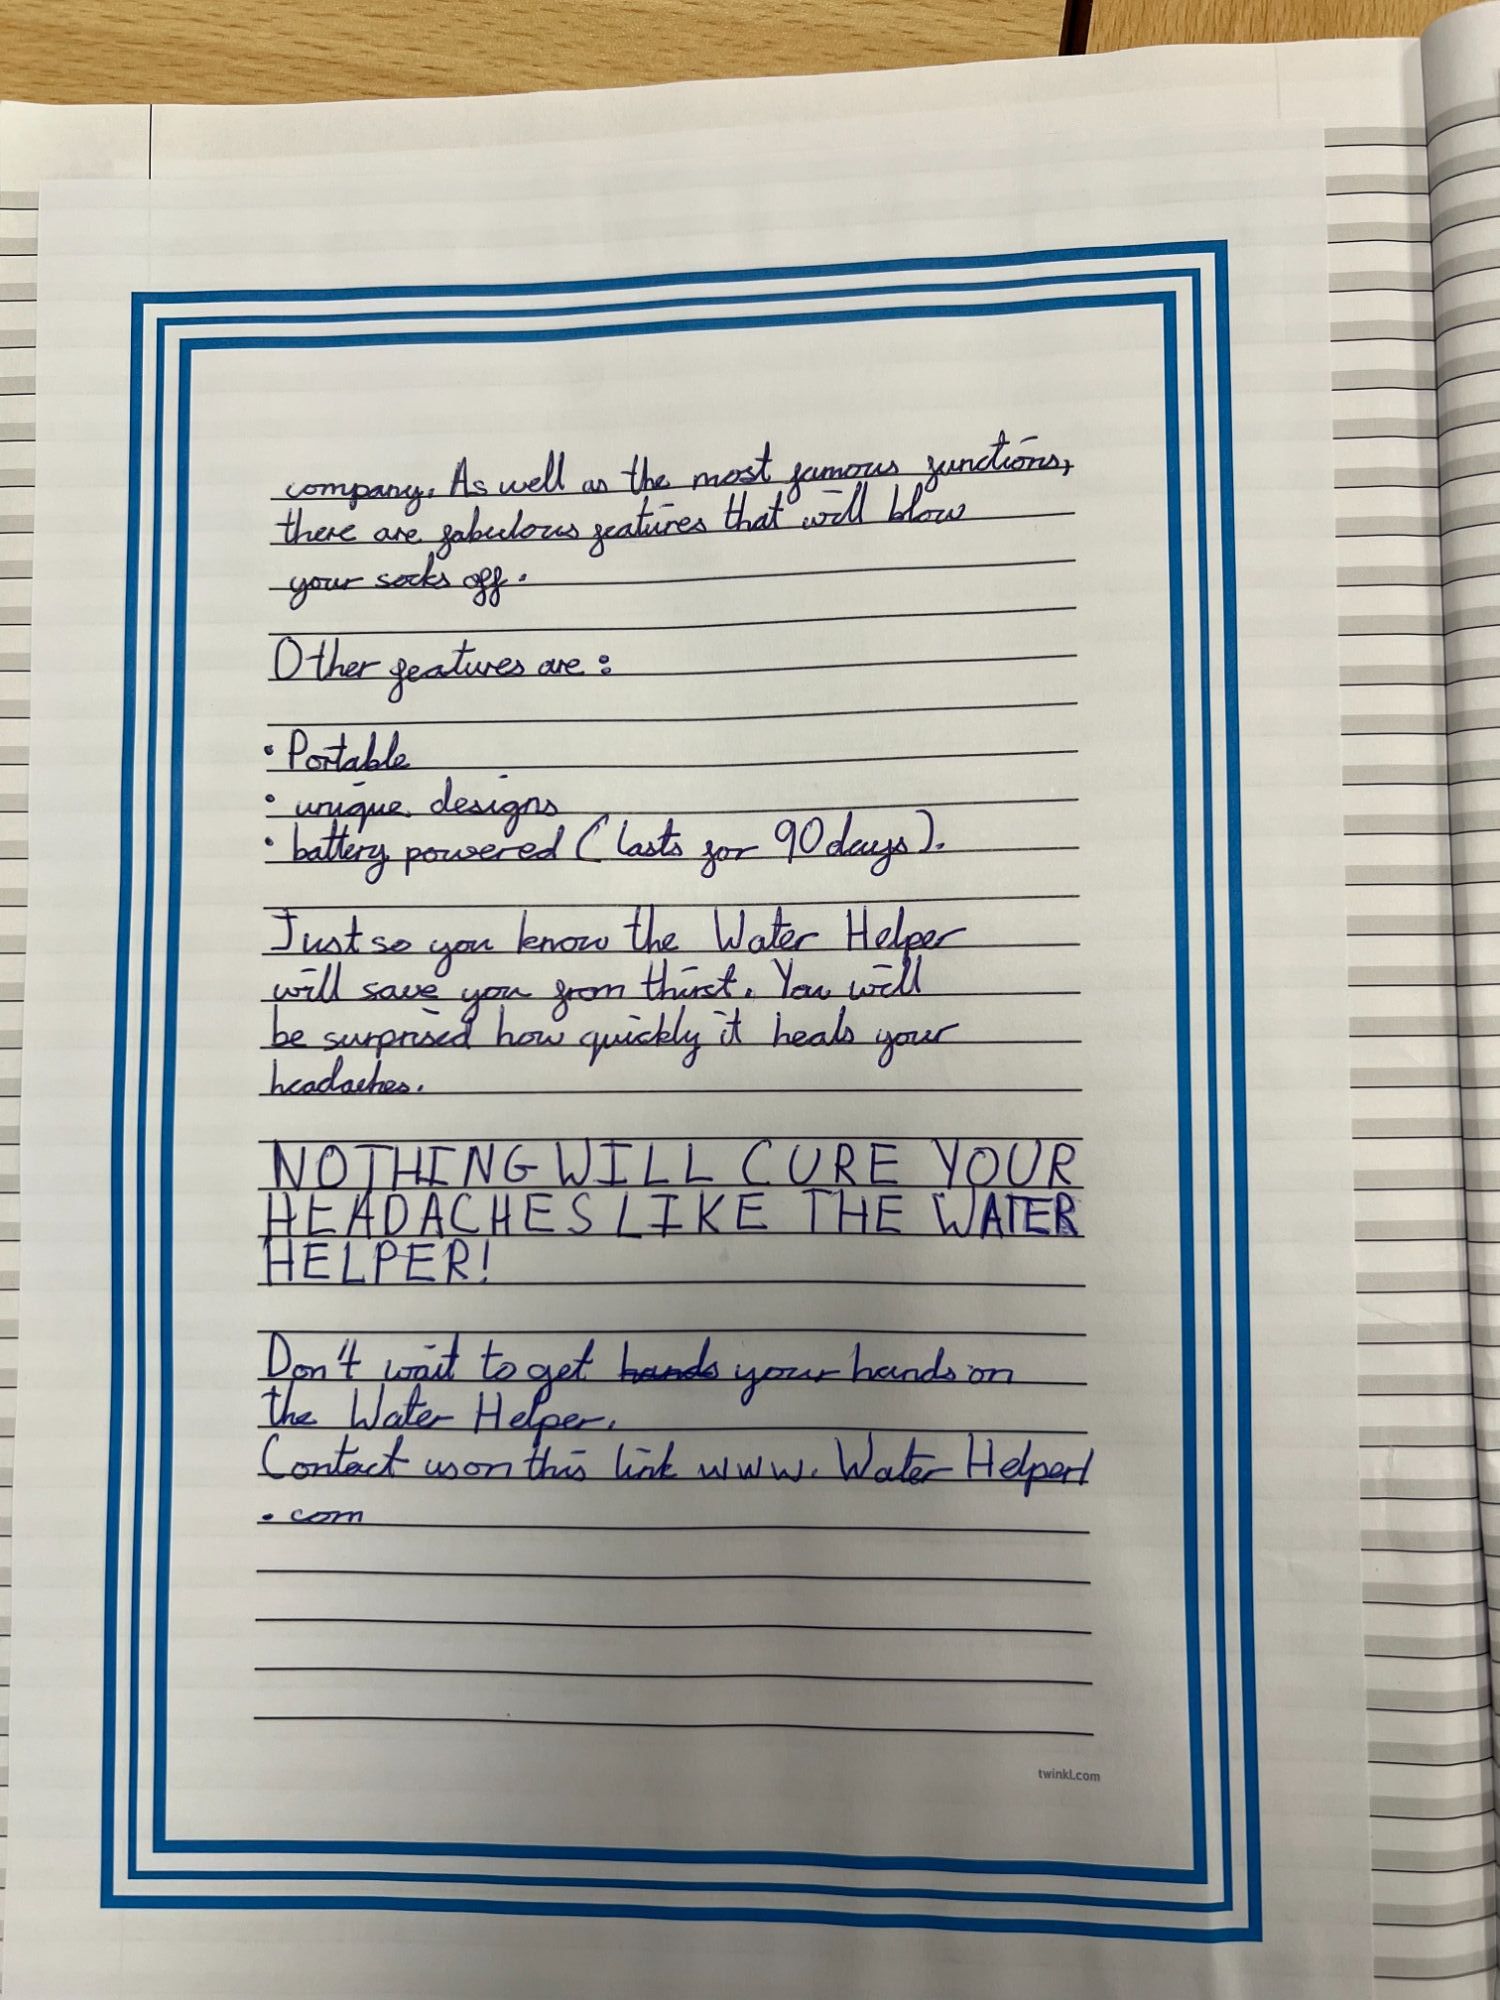 company. As well as the most famous functions,
there are fabulous features that will blow
your socks off.
Other features are:
• Portable
• unique designs
• battery powered (lasts for 90 days).
Just so you know the Water Helper
will save you from thirst. You will
be surprised how quickly it heals your
headaches.
NOTHING WILL CURE YOUR
HEADACHES LIKE THE WATER
HELPER!
Don't wait to get hands your hands on
the Water Helper.
Contact us on this link www. Water Helper1
.com
twinkl.com